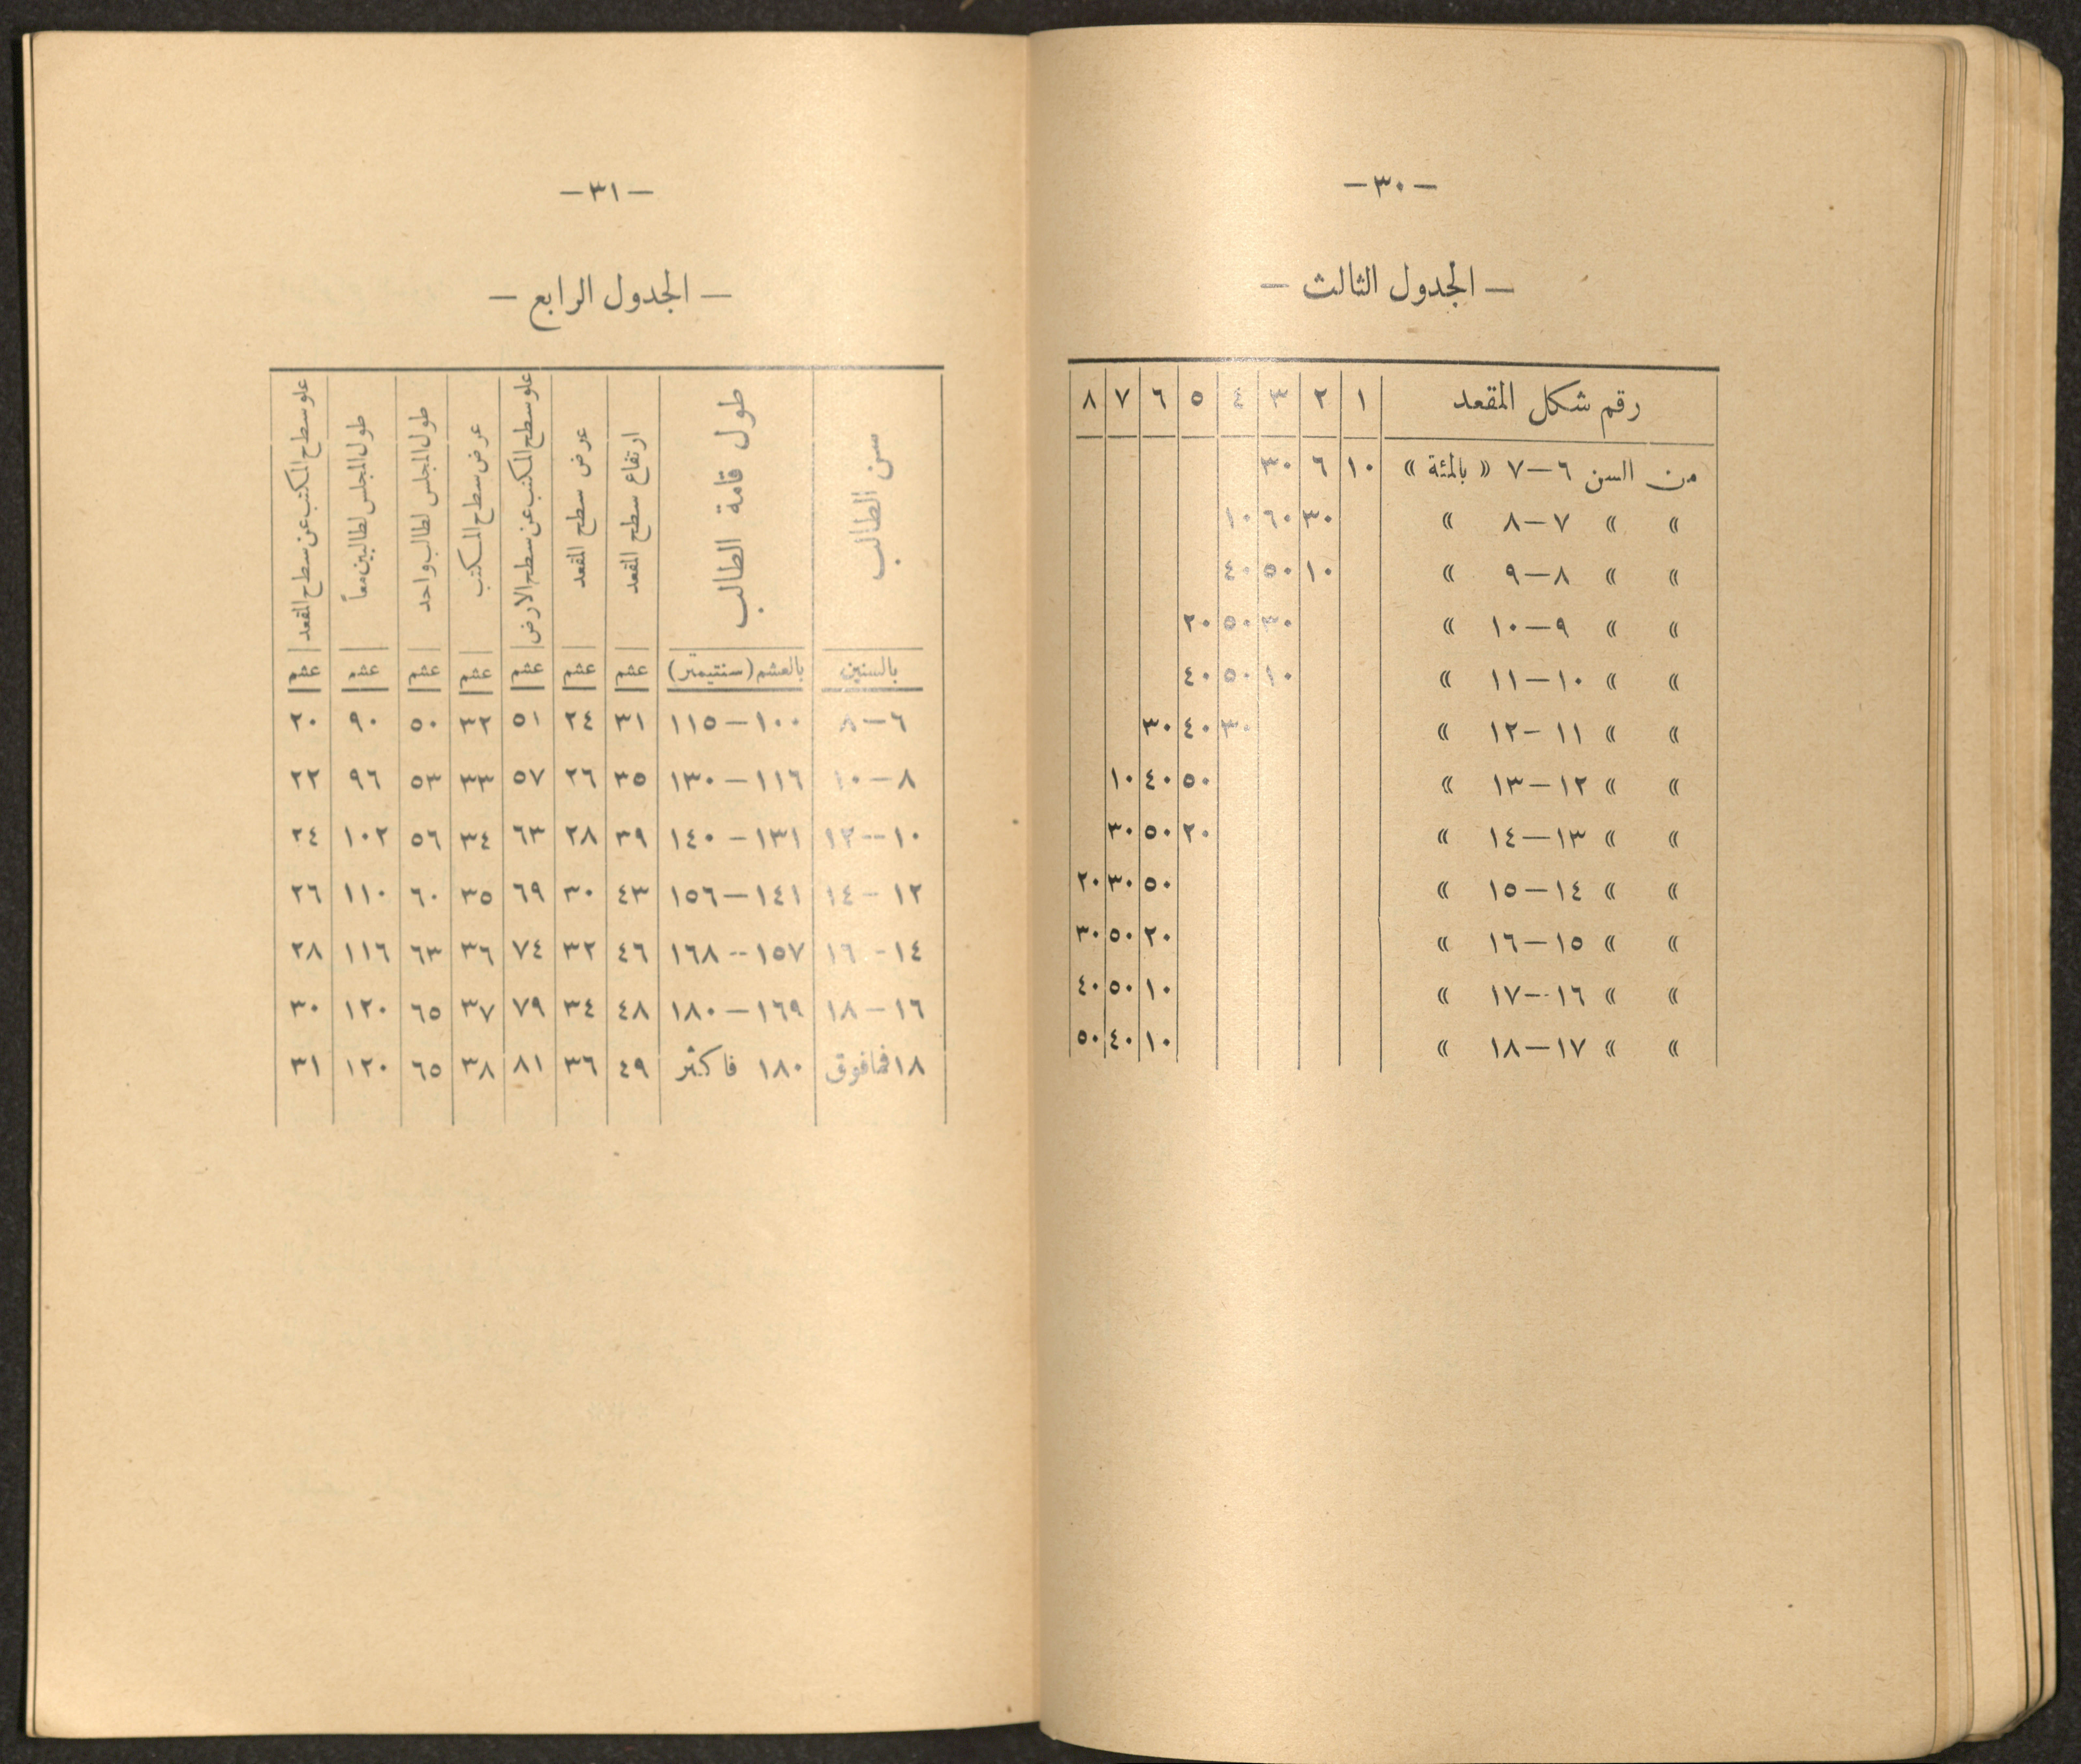 —٣٠—
— الجدول الثالث —
رقم شكل المقعد ١ ٢ ٣ ٤ ٥ ٦ ٧ ٨
من السن ٦—٧ « بالمئة » ١٠ ٦ ٣٠
» » ٧—٨ » ٣٠ ٦٠ ١٠
» » ٨—٩ » ١٠ ٥٠ ٤٠
» » ٩—١٠ » ٣٠ ٥٠ ٢٠
» » ١٠—١١ » ١٠ ٥٠ ٤٠
» » ١١—١٢ » ٣٠ ٤٠ ٣٠
» » ١٢—١٣ » ٥٠ ٤٠ ١٠
» » ١٣—١٤ » ٢٠ ٥٠ ٣٠
» » ١٤—١٥ » ٥٠ ٣٠ ٢٠
» » ١٥—١٦ » ٢٠ ٥٠ ٣٠
» » ١٦—١٧ » ١٠ ٥٠ ٤٠
» » ١٧—١٨ » ١٠ ٤٠ ٥٠
—٣١—
— الجدول الرابع —
سن الطالب
طول قامة الطالب
ارتفاع سطح المقعد
عرض سطح المقعد
علو سطح المكتب عن سطح الارض
عرض سطح المكتب
طول المجلس لطالب واحد
طول المجلس لطالبين معاً
علو سطح المكتب عن سطح المقعد
بالسنين بالعشم (سنتيمتر) عشم عشم عشم عشم عشم عشم عشم
٦—٨ ١٠٠—١١٥ ٣١ ٢٤ ٥١ ٣٢ ٥٠ ٩٠ ٢٠
٨—١٠ ١١٦—١٣٠ ٣٥ ٢٦ ٥٧ ٣٣ ٥٣ ٩٦ ٢٢
١٠—١٢ ١٣١—١٤٠ ٣٩ ٢٨ ٦٣ ٣٤ ٥٦ ١٠٢ ٢٤
١٢—١٤ ١٤١—١٥٦ ٤٣ ٣٠ ٦٩ ٣٥ ٦٠ ١١٠ ٢٦
١٤—١٦ ١٥٧—١٦٨ ٤٦ ٣٢ ٧٤ ٣٦ ٦٣ ١١٦ ٢٨
١٦—١٨ ١٦٩—١٨٠ ٤٨ ٣٤ ٧٩ ٣٧ ٦٥ ١٢٠ ٣٠
١٨ فما فوق ١٨٠ فاكثر ٤٩ ٣٦ ٨١ ٣٨ ٦٥ ١٢٠ ٣١